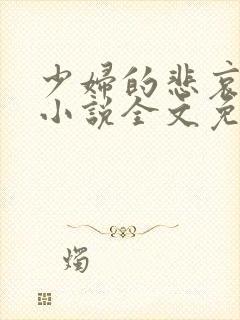 少婦的悲哀
小說全文免
燭